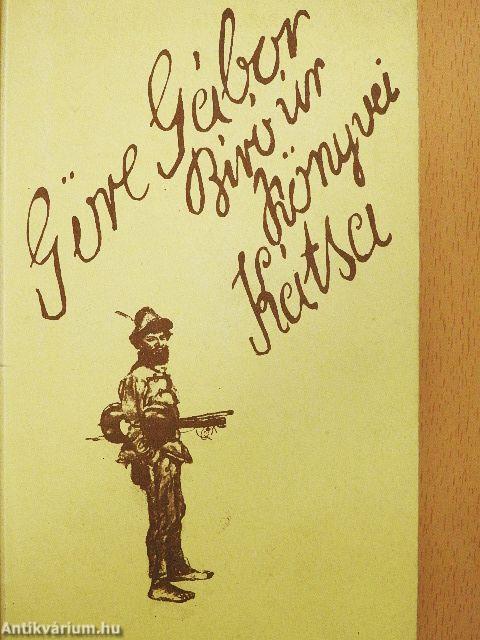 Göre Gábor
Biró úr
Könyvei
Kátsa
Antikvárium.hu